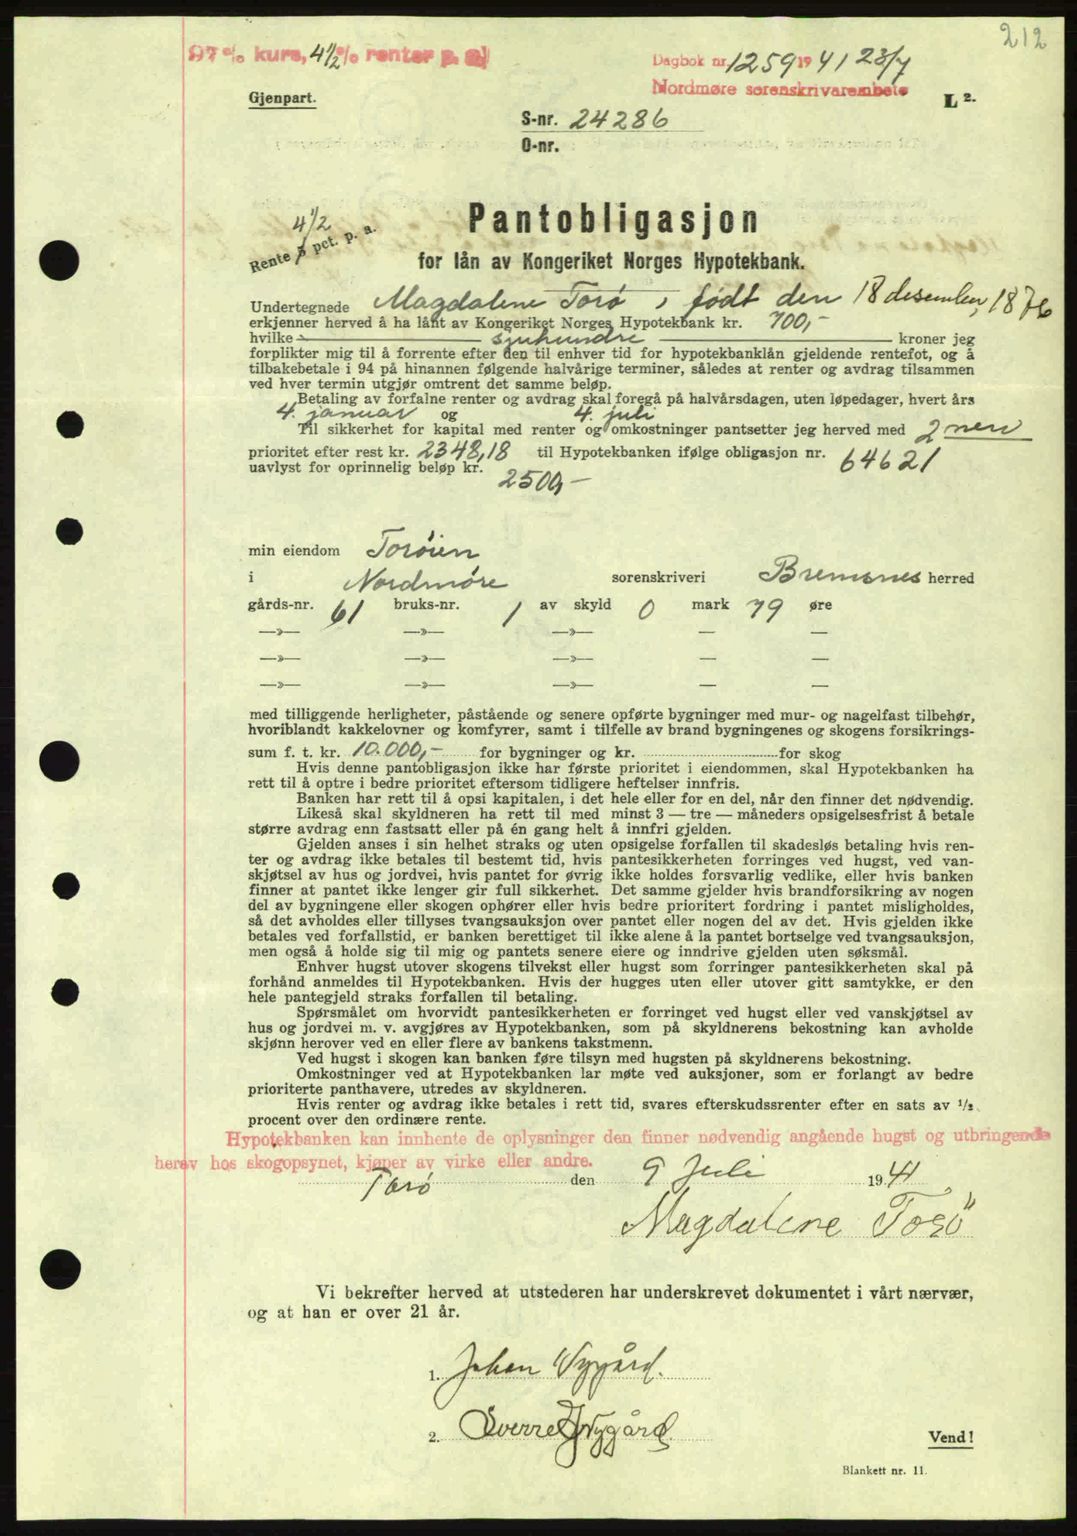 212
97% kurs, 4 1/2 % renter p. a.
Dagbok nr. 1259 1941 23/7
Nordmøre sorenskrivarembete
Gjenpart.
L 2.
S-nr. 24286
O-nr.
Pantobligasjon
4 1/2
Rente 5 pct. p. a.
for lån av Kongeriket Norges Hypotekbank.
Undertegnede Magdalene Torø, født den 18 desember, 1876
erkjenner herved å ha lånt av Kongeriket Norges Hypotekbank kr. 700,-
hvilke syvhundre kroner jeg
forplikter mig til å forrente efter den til enhver tid for hypotekbanklån gjeldende rentefot, og å
tilbakebetale i 94 på hinannen følgende halvårige terminer, således at renter og avdrag tilsammen
ved hver termin utgjør omtrent det samme beløp.
Betaling av forfalne renter og avdrag skal foregå på halvårsdagen, uten løpedager, hvert års
4. januar og 4. juli
Til sikkerhet for kapital med renter og omkostninger pantsetter jeg herved med 2nen
prioritet efter rest kr. 2348,18 til Hypotekbanken ifølge obligasjon nr. 64621
uavlyst for oprinnelig beløp kr. 2500,-
min eiendom Torøien
i Nordmøre sorenskriveri Bremsnes herred
gårds-nr. 61 bruks-nr. 1 av skyld 0 mark 79 øre
—»— —»— —»— — —
—»— —»— —»— — —
—»— —»— —»— — —
med tilliggende herligheter, påstående og senere opførte bygninger med mur- og nagelfast tilbehør,
hvoriblandt kakkelovner og komfyrer, samt i tilfelle av brand bygningenes og skogens forsikrings-
sum f. t. kr. 10.000,- for bygninger og kr. for skog
Hvis denne pantobligasjon ikke har første prioritet i eiendommen, skal Hypotekbanken ha
rett til å optre i bedre prioritet eftersom tidligere heftelser innfris.
Banken har rett til å opsi kapitalen, i det hele eller for en del, når den finner det nødvendig.
Likeså skal skyldneren ha rett til med minst 3 — tre — måneders opsigelsesfrist å betale
større avdrag enn fastsatt eller på én gang helt å innfri gjelden.
Gjelden anses i sin helhet straks og uten opsigelse forfallen til skadesløs betaling hvis ren-
ter og avdrag ikke betales til bestemt tid, hvis pantesikkerheten forringes ved hugst, ved van-
skjøtsel av hus og jordvei, hvis pantet for øvrig ikke holdes forsvarlig vedlike, eller hvis banken
finner at pantet ikke lenger gir full sikkerhet. Det samme gjelder hvis brandforsikring av nogen
del av bygningene eller skogen ophører eller hvis bedre prioritert fordring i pantet misligholdes,
så det avholdes eller tillyses tvangsauksjon over pantet eller nogen del av det. Hvis gjelden ikke
betales ved forfallstid, er banken berettiget til ikke alene å la pantet bortselge ved tvangsauksjon,
men også å holde sig til mig og pantets senere eiere og inndrive gjelden uten søksmål.
Enhver hugst utover skogens tilvekst eller hugst som forringer pantesikkerheten skal på
forhånd anmeldes til Hypotekbanken. Hvis der hugges uten eller utover gitt samtykke, er den
hele pantegjeld straks forfallen til betaling.
Spørsmålet om hvorvidt pantesikkerheten er forringet ved hugst eller ved vanskjøtsel av
hus og jordvei m. v. avgjøres av Hypotekbanken, som på skyldnerens bekostning kan avholde
skjønn herover ved en eller flere av bankens takstmenn.
Ved hugst i skogen kan banken føre tilsyn med hugsten på skyldnerens bekostning.
Omkostninger ved at Hypotekbanken lar møte ved auksjoner, som er forlangt av bedre
prioriterte panthavere, utredes av skyldneren.
Hvis renter og avdrag ikke betales i rett tid, svares efterskudssrenter efter en sats av 1/2
procent over den ordinære rente.
Hypotekbanken kan innhente de oplysninger den finner nødvendig angående hugst og utbringende
herav hos skogopsynet, kjøper av virke eller andre.
Torø den 9 Juli 1941
Magdalene Torö
Vi bekrefter herved at utstederen har underskrevet dokumentet i vårt nærvær,
og at han er over 21 år.
1. Johan Nygård.
2. Sverre J Nygård.
Vend!
Blankett nr. 11.